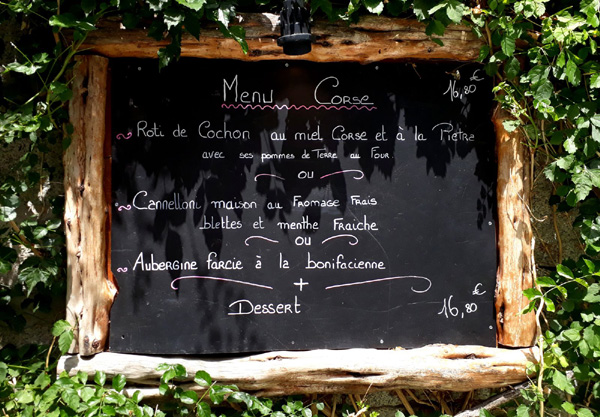 Menu Corse 16,80 €
Roti de Cochon au miel Corse et à la Pietra
avec ses pommes de Terre au Four.
ou
Cannelloni maison au Fromage Frais
blettes et menthe Fraiche
ou
Aubergine farcie à la bonifacienne
+
Dessert 16,80 €